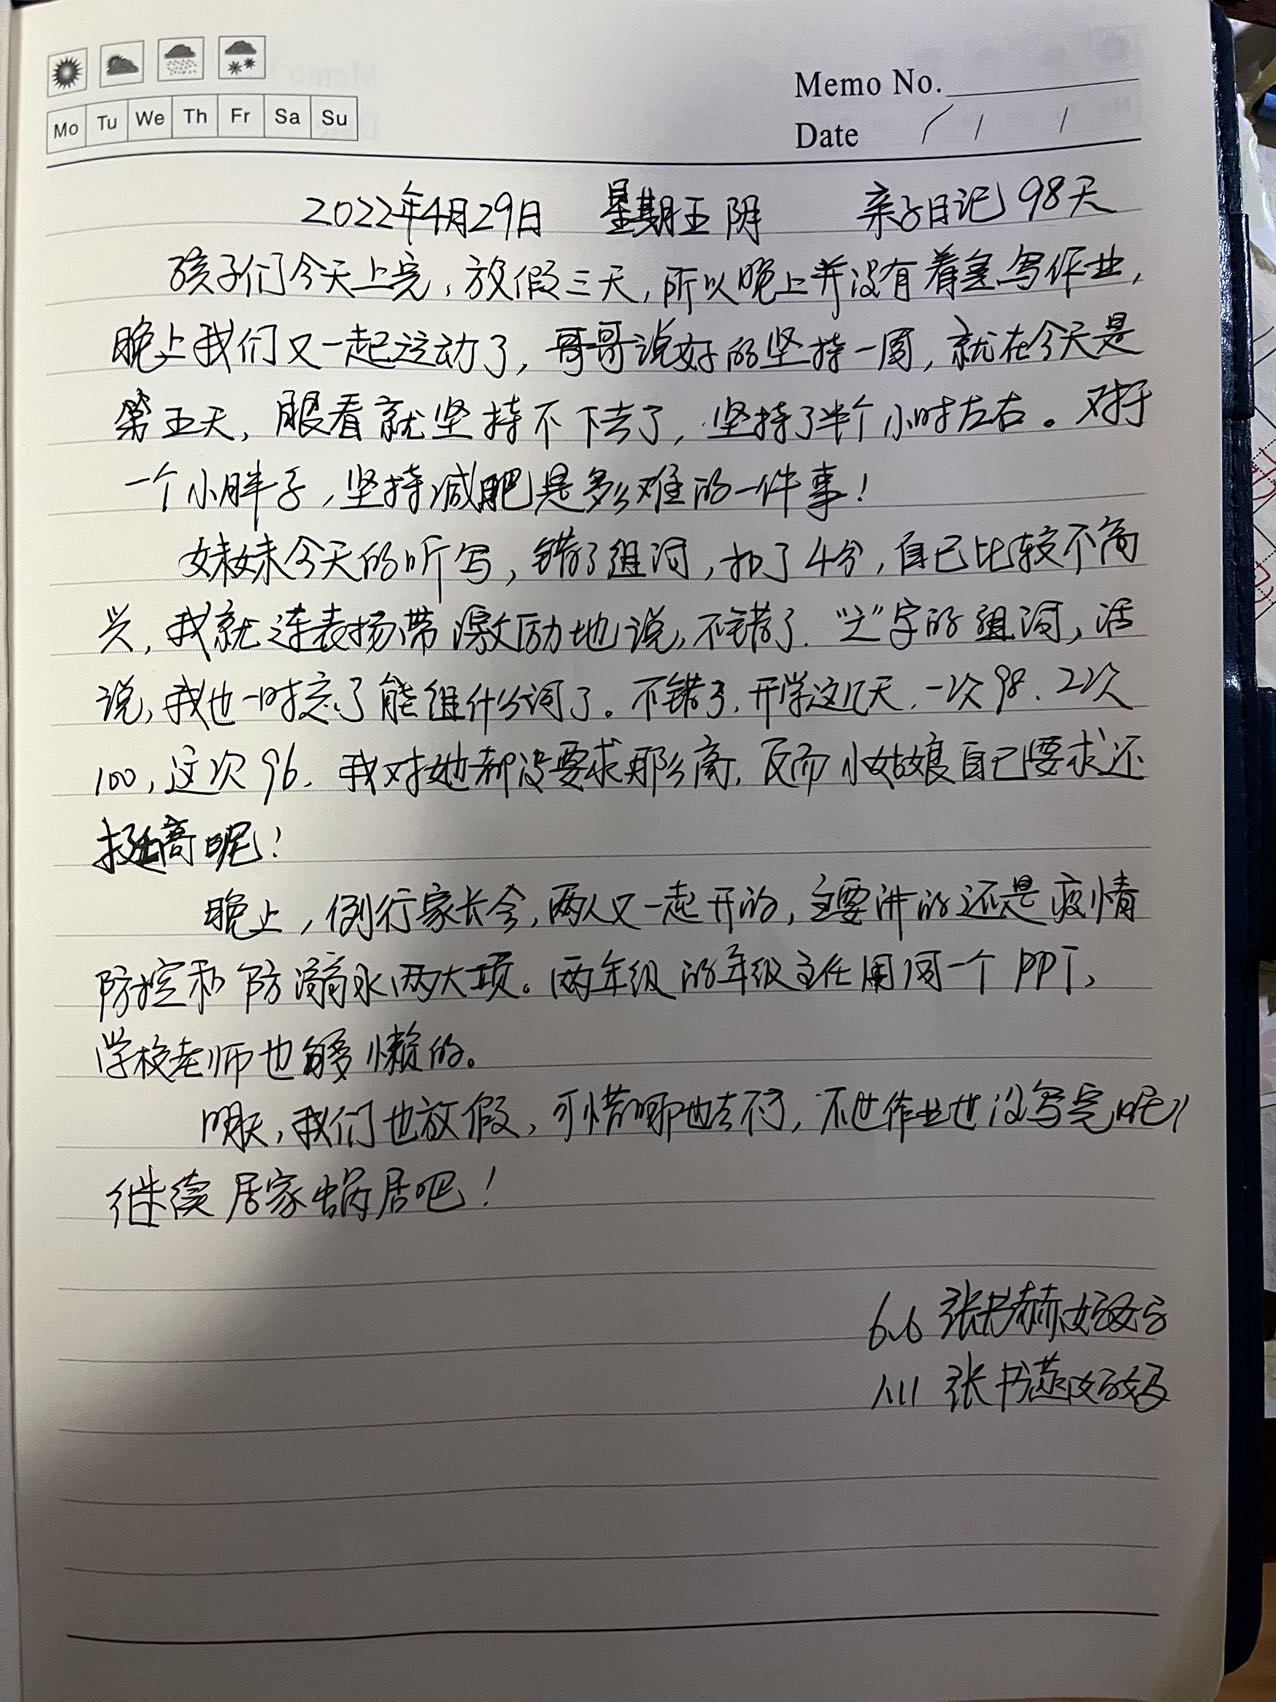 Mo Tu We Th Fr Sa Su
Memo No.
Date / / /
2022年4月29日 星期五 阴 亲子日记98天
孩子们今天上完，放假三天，所以晚上并没有着急写作业，
晚上我们又一起运动了，哥哥说好的坚持一周，就在今天是
第五天，眼看就坚持不下去了，坚持了半个小时左右。对于
一个小胖子，坚持减肥是多么难的一件事！
妹妹今天的听写，错了组词，扣了4分，自己比较不高
兴，我就连表扬带激励地说，不错了．“之”字的组词，话
说，我也一时忘了能组什么词了。不错了，开学这几天，一次98、2次
100，这次96．我对她都没要求那么高，反而小姑娘自己要求还
挺高呢！
晚上，例行家长会，两人又一起开的，主要讲的还是疫情
防控和防溺水两大项。两年级的年级主任用同一个PPT，
学校老师也够懒的。
明天，我们也放假，可惜哪也去不了，不过作业也没写完呢！
继续居家蜗居吧！
6.6 张书赫妈妈
1.11 张书燕妈妈